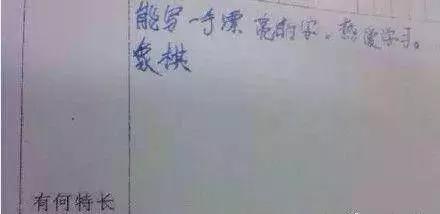 能写一手漂亮的字。热爱学习。
象棋
有何特长